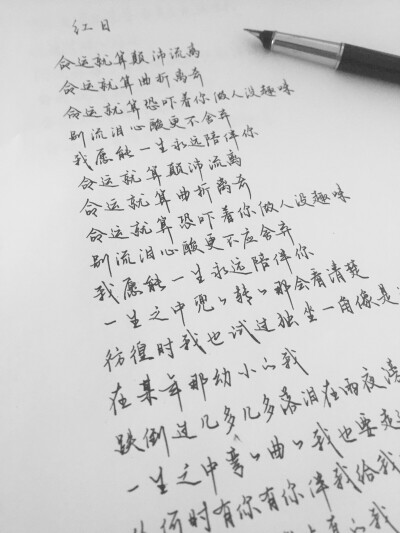 红日
命运就算颠沛流离
命运就算曲折离奇
命运就算恐吓着你做人没趣味
别流泪心酸更不舍弃
我愿能一生永远陪伴你
命运就算颠沛流离
命运就算曲折离奇
命运就算恐吓着你做人没趣味
别流泪心酸更不应舍弃
我愿能一生永远陪伴你
一生之中兜〃转〃那会看清楚
彷徨时我也试过独坐一角像是
在某年那幼小的我
跌倒过几多几多落泪在雨夜滂
一生之中弯〃曲〃我也要走过
时有你有你伴我给我